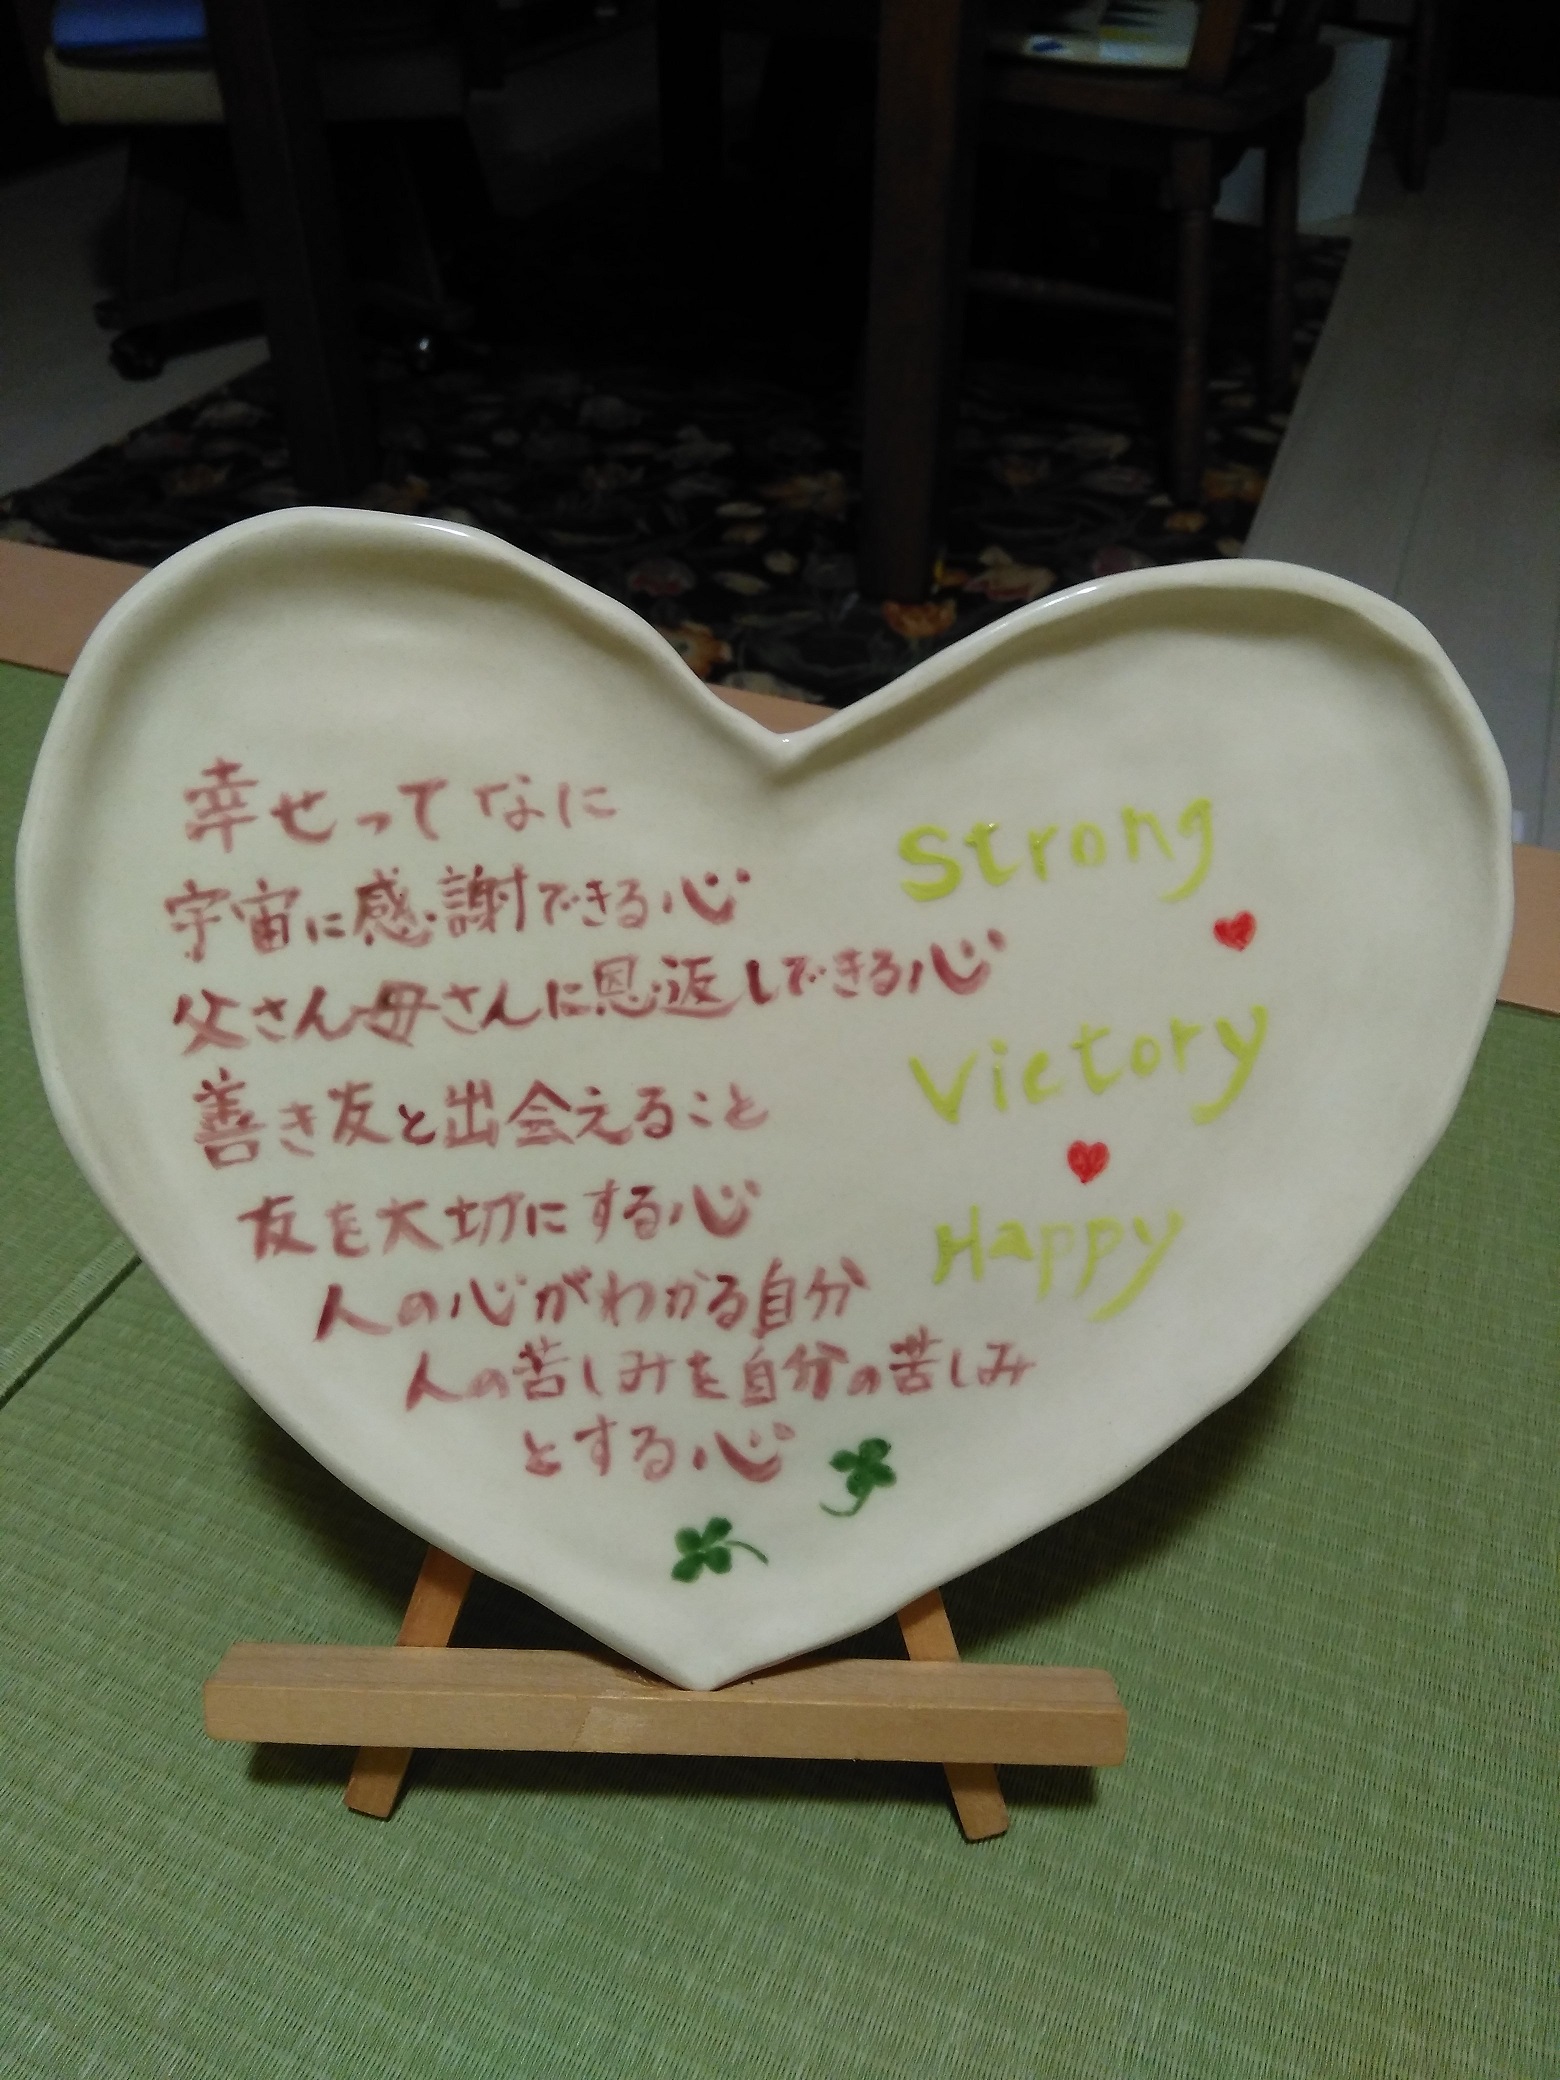 幸せってなに
宇宙に感謝できる心
父さん母さんに恩返しできる心
善き友と出会えること
友を大切にする心
人の心がわかる自分
人の苦しみを自分の苦しみ
とする心
Strong
Victory
Happy